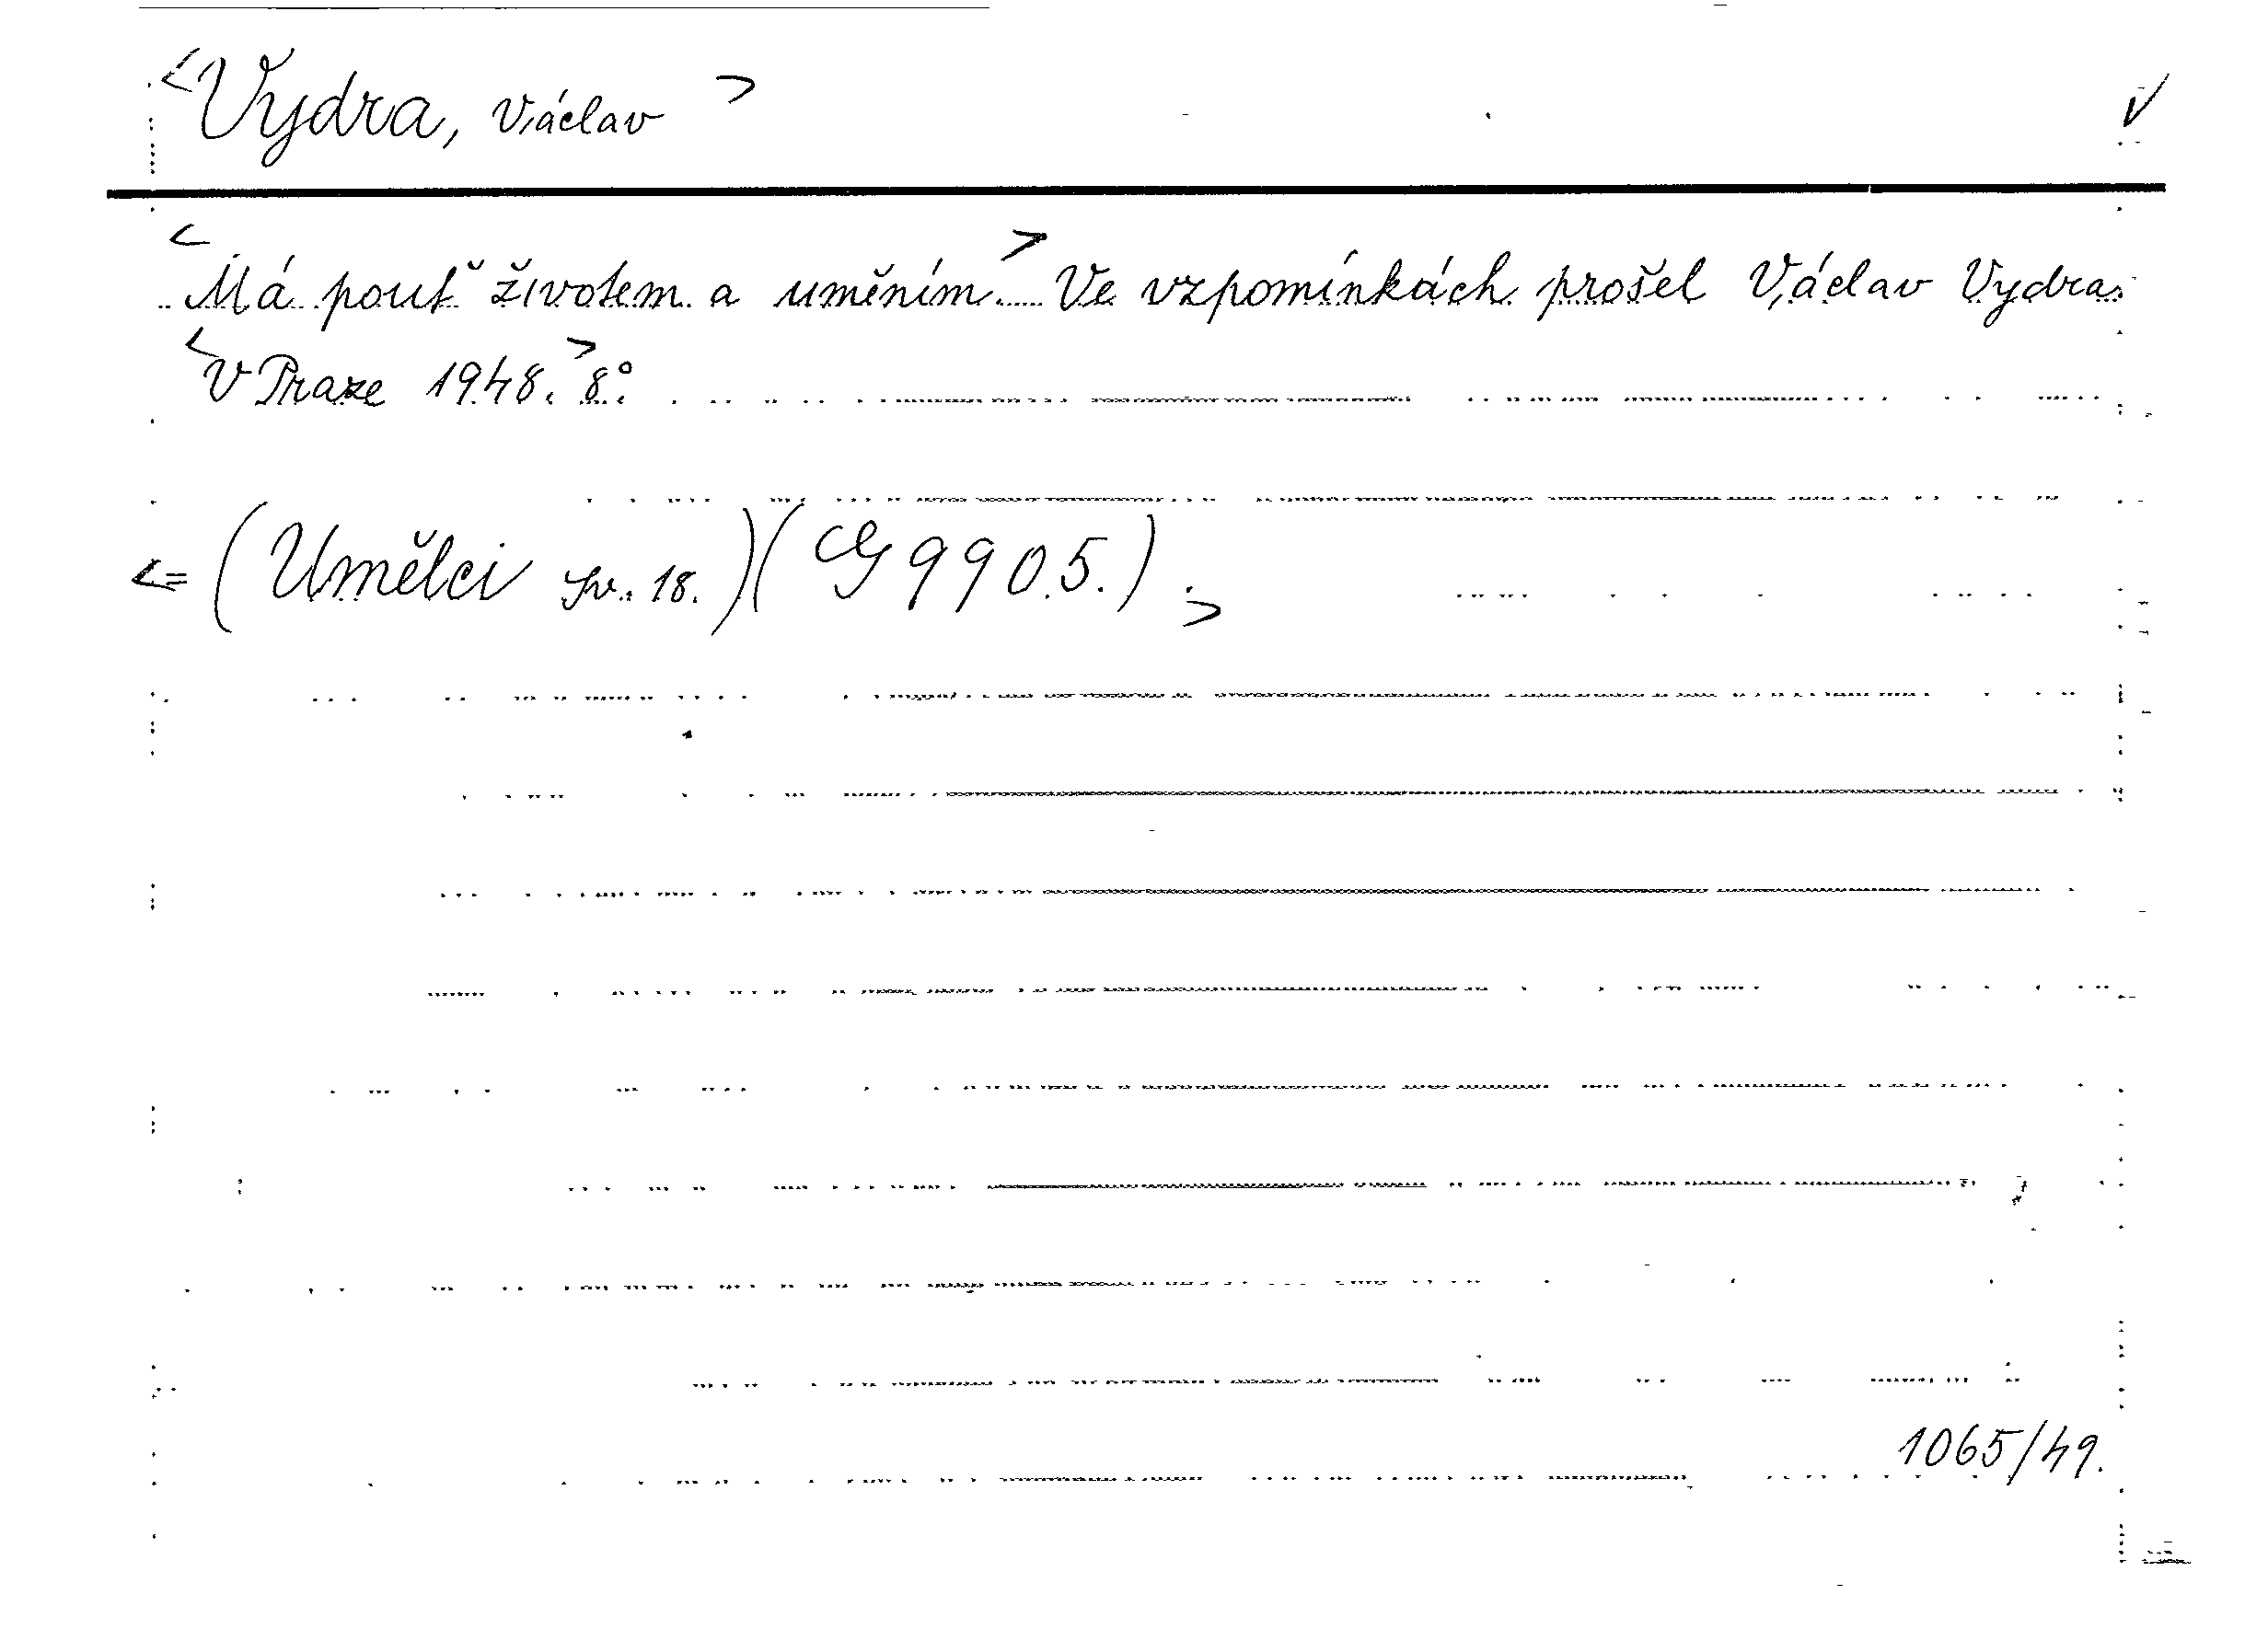 <Vydra, Václav> √
<Má pouť životem a uměním.> Ve vzpomínkách prošel Václav Vydra.
<V Praze 1948.> 8°.
<= (Umělci sv. 18.)(G 9905.).>
1065/49.